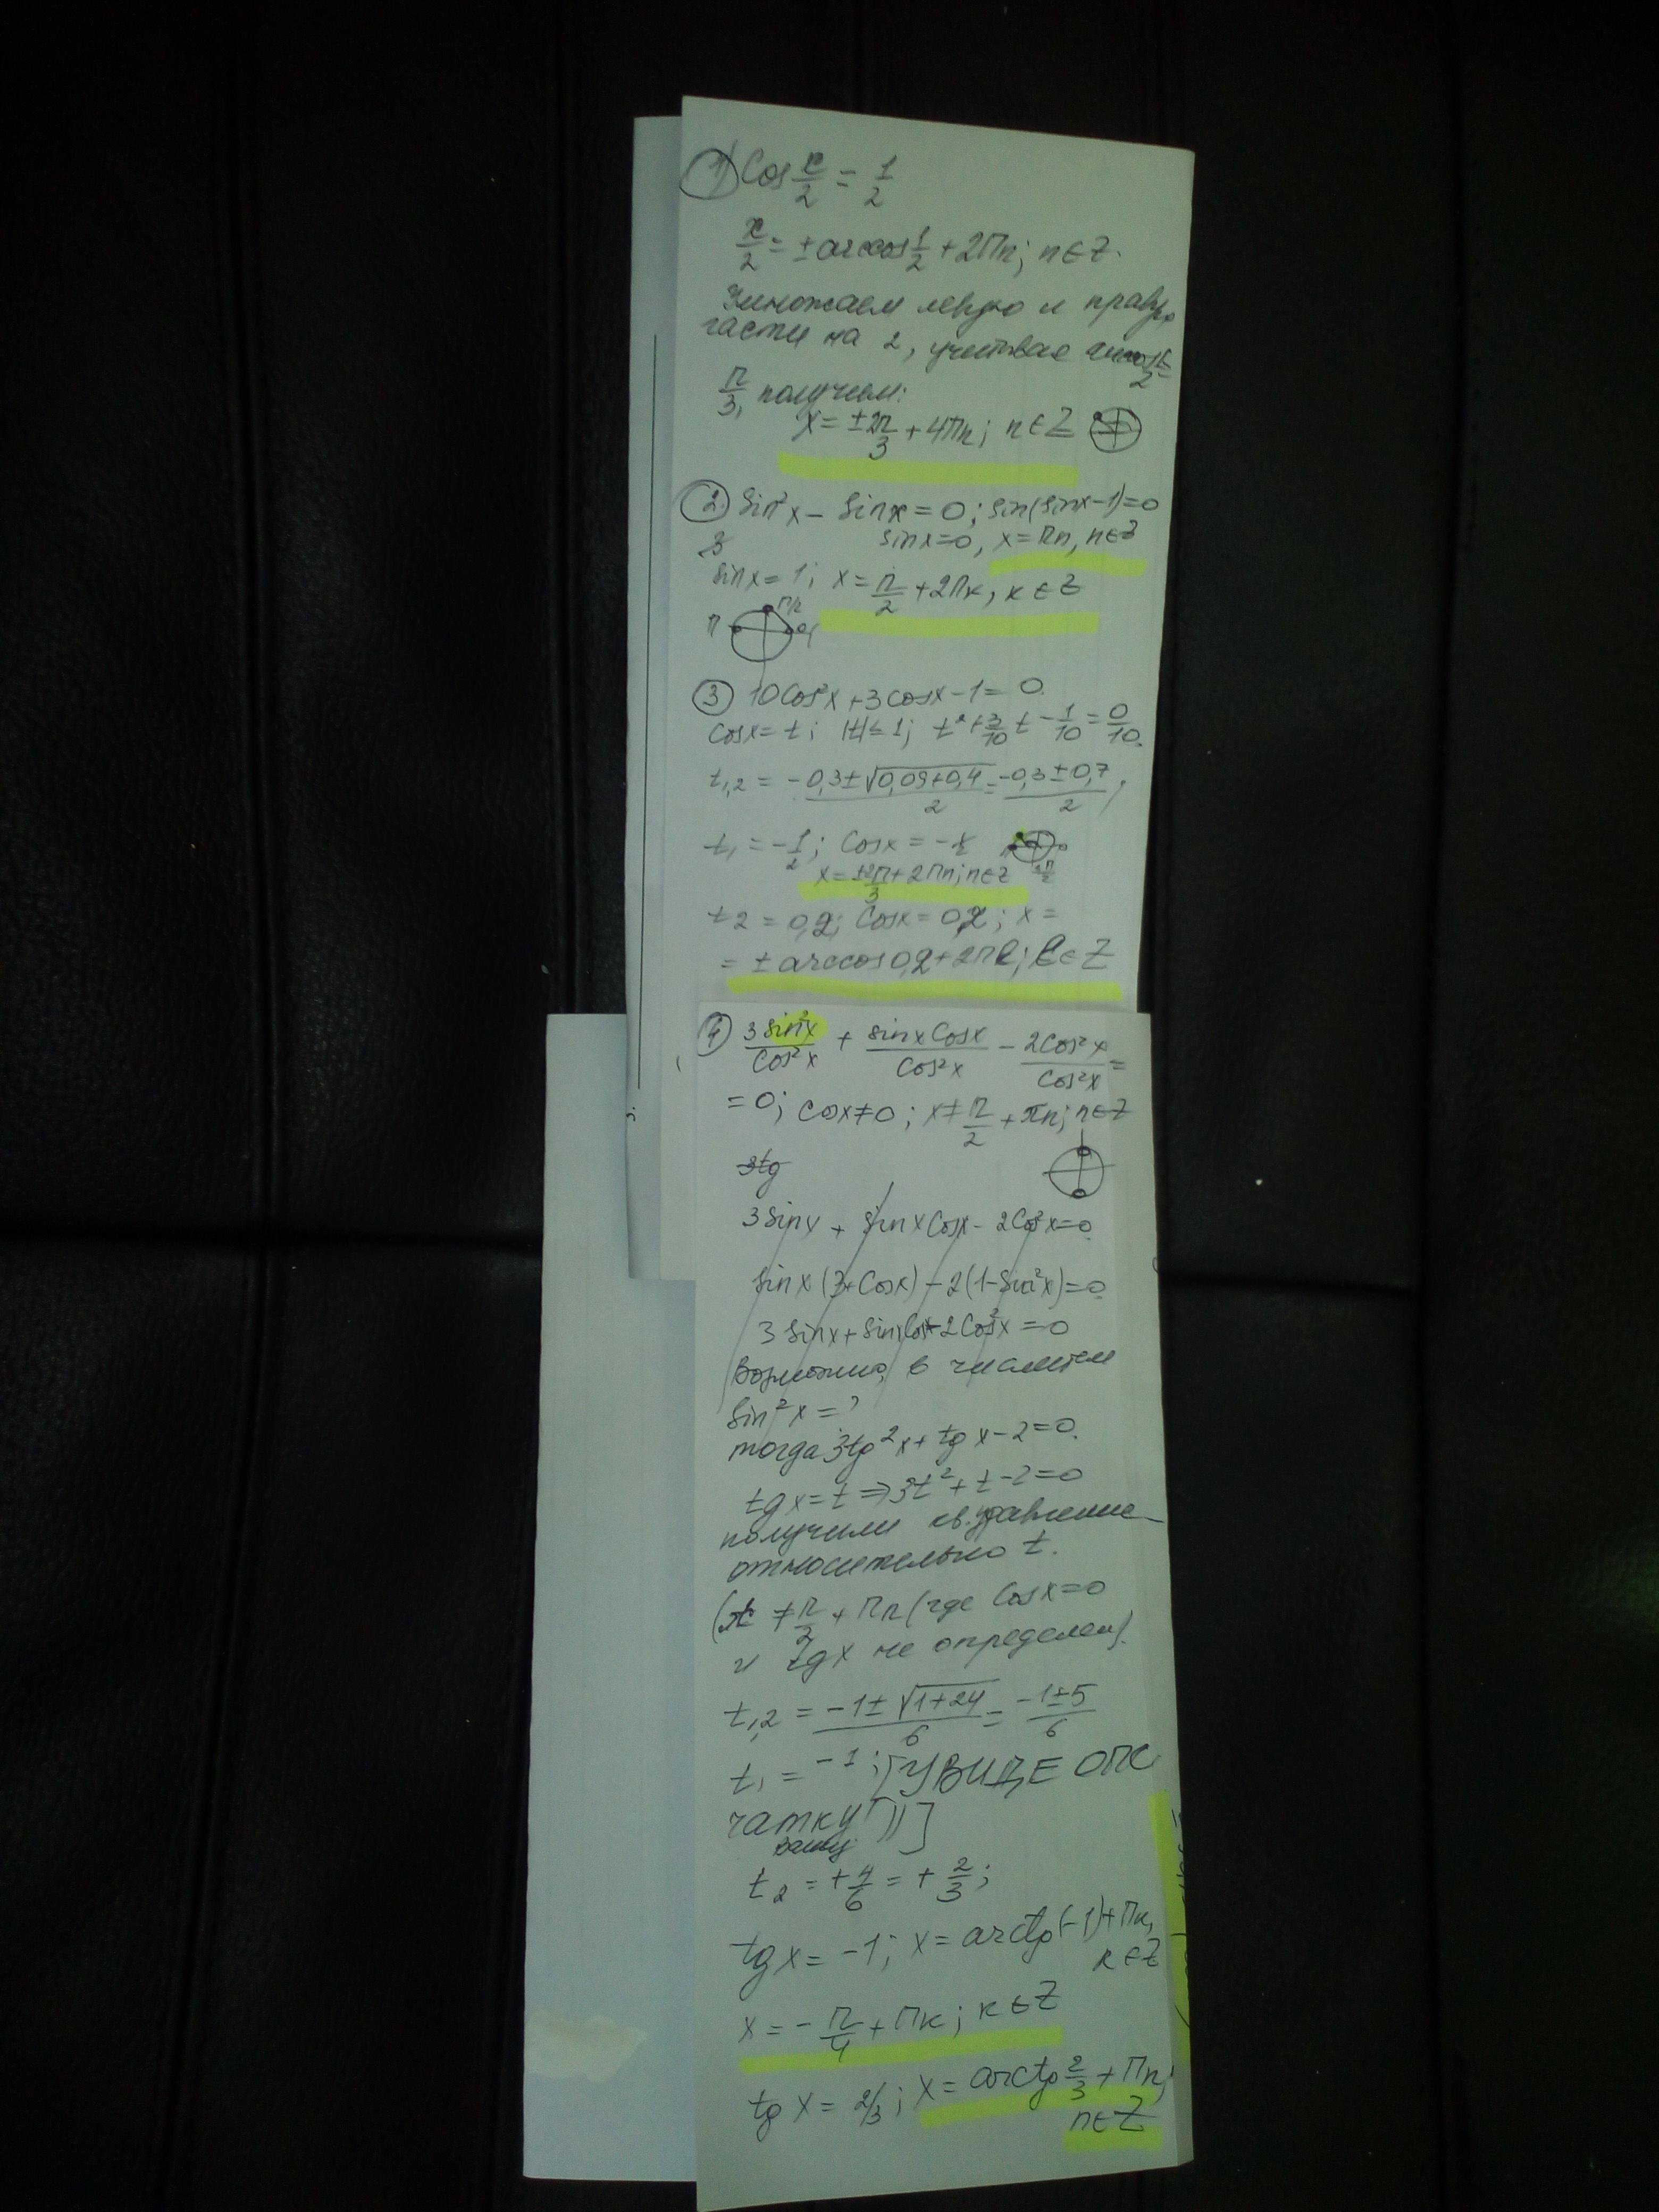 1) Cos x/2 = 1/2
x/2 = ± arccos 1/2 + 2Пn; n∈Z.
Умножаем левую и правую
части на 2, учитывая arccos 1/2 =
П/3, получим:
x = ±2П/3 + 4Пn; n∈Z
2. Sin²x - Sinx = 0; sin(sinx-1)=0
sinx=0, x=Пn, n∈Z
sinx=1; x=П/2+2Пк, к∈Z
П/2
П
3 10Cos²x+3cosx-1=0.
Cosx=t; |t|≤1; t²+3/10 t-1/10=0/10.
t1,2 = (-0,3±√(0,09+0,4))/2 = (-0,3±0,7)/2;
t1 = -1/2; Cosx=-1/2
x=±2П/3+2Пn; n∈Z
t2=0,2; Cosx=0,2; x=
=± arccos0,2+2Пℓ; ℓ∈Z
4) 3sin²x/Cos²x + sinxCosx/Cos²x - 2Cos²x/Cos²x =
=0; cosx≠0; x≠П/2+πn; n∈Z
3tg
3sinx + sinxCosx-2Cos²x=0
sinx(3+Cosx)-2(1-sin²x)=0
3sinx+sinxCosx-2Cos²x=0
Возможно, в числителе
Sin²x=?
тогда 3tg²x+tgx-2=0.
tgx=t⇒3t²+t-2=0
получили кв. уравнение
относительно t.
(x≠П/2+Пn (где Cosx=0
и tgx не определен).
t1,2 = (-1±√(1+24))/6 = (-1±5)/6
t1 = -1; [УВИДЕ ОПЕ
чатку ))]
вашу
t2 = +4/6 = +2/3;
tgx=-1; x=arctg(-1)+Пк,
к∈Z
x=-П/4+Пк; к∈Z
tgx=2/3; x=arctg 2/3+Пn;
n∈Z